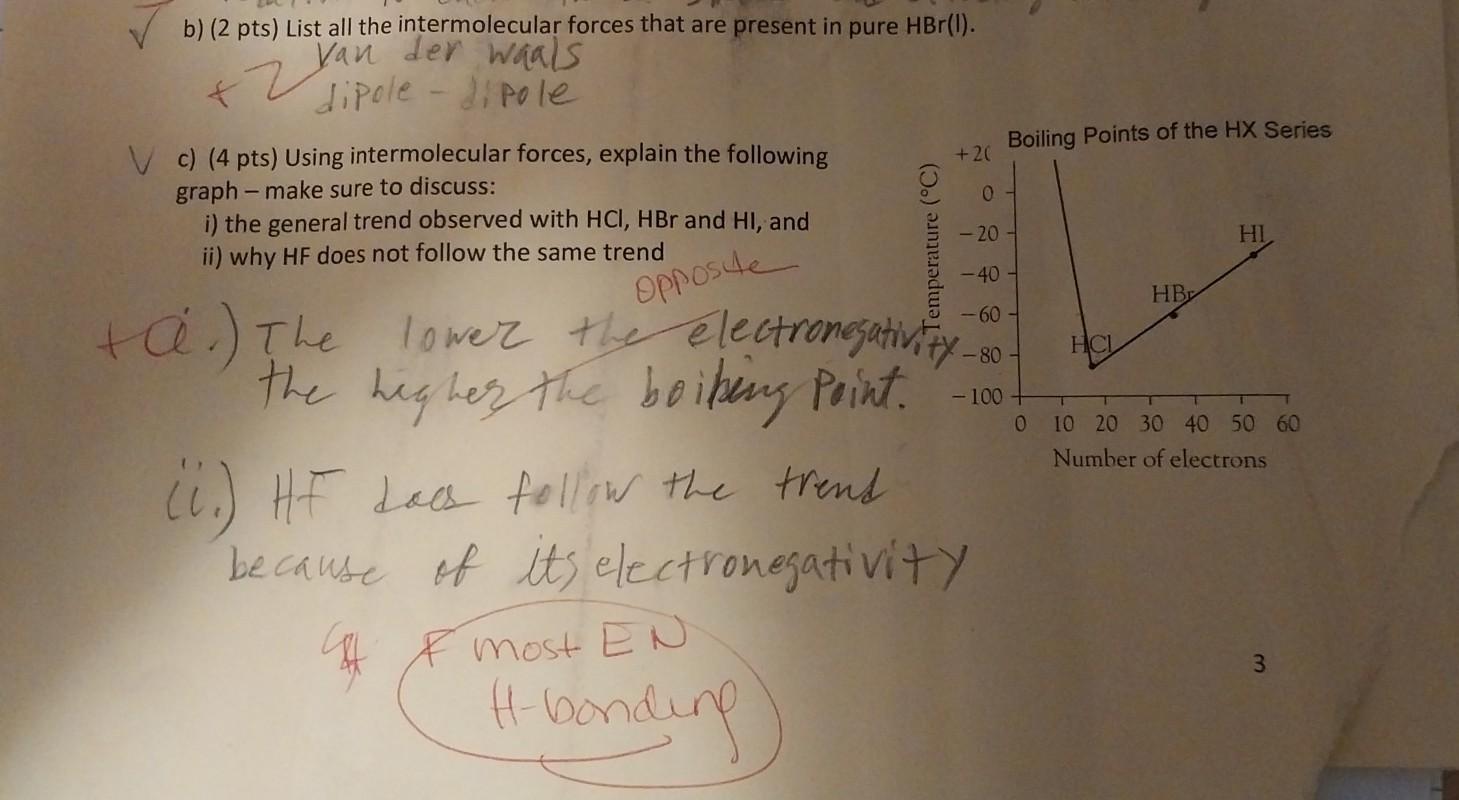 b) (2 pts) List all the intermolecular forces that are present in pure HBr(l).
Van der waals
+2
dipole - dipole
c) (4 pts) Using intermolecular forces, explain the following
graph – make sure to discuss:
i) the general trend observed with HCl, HBr and HI, and
ii) why HF does not follow the same trend
opposite
i.) The lower the electronegativity
the higher the boiling Point.
ii.) HF does follow the trend
because of its electronegativity
F most EN
H-bonding
Boiling Points of the HX Series
Temperature (°C)
+2
0
−20
−40
−60
−80
−100
HI
HBr
HCl
0 10 20 30 40 50 60
Number of electrons
3